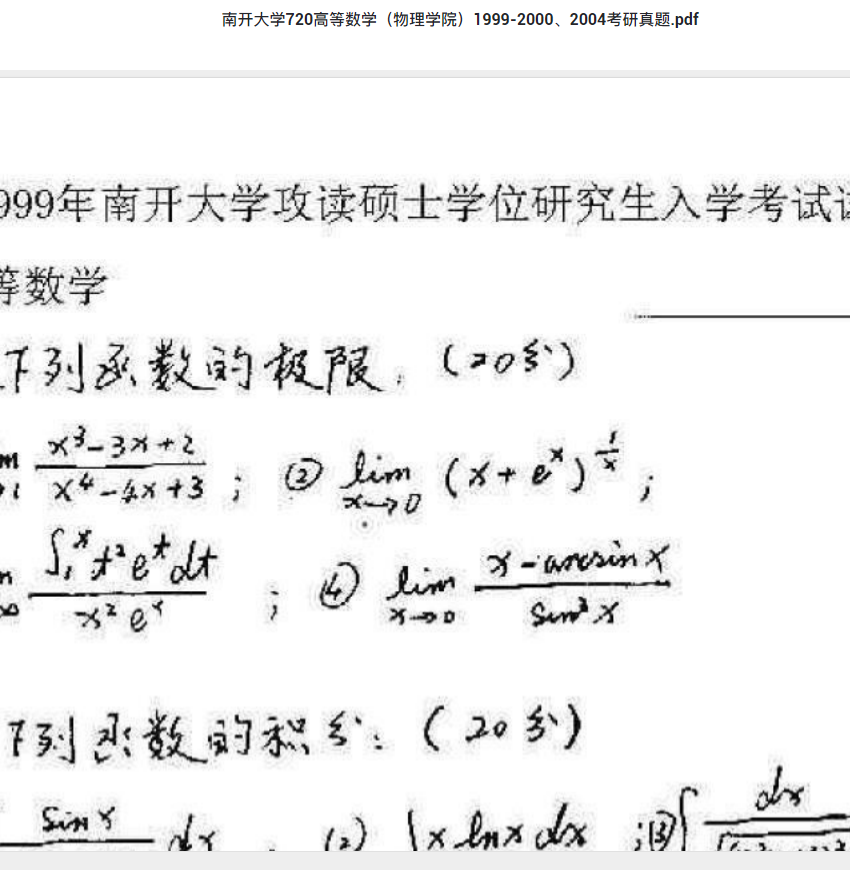 南开大学720高等数学（物理学院）1999-2000、2004考研真题.pdf
999年南开大学攻读硕士学位研究生入学考试
等数学
下列函数的极限. (20分)
x³-3x+2 / x⁴-4x+3 ; ② lim x→0 (x+eˣ)^(1/x) ;
∫₁ˣ t²eᵗdt / x²eˣ ; ④ lim x→0 x-arcsinx / sin³x
下列函数的积分: (20分)
sinx dx (2) ∫x lnx dx ;③∫ dx